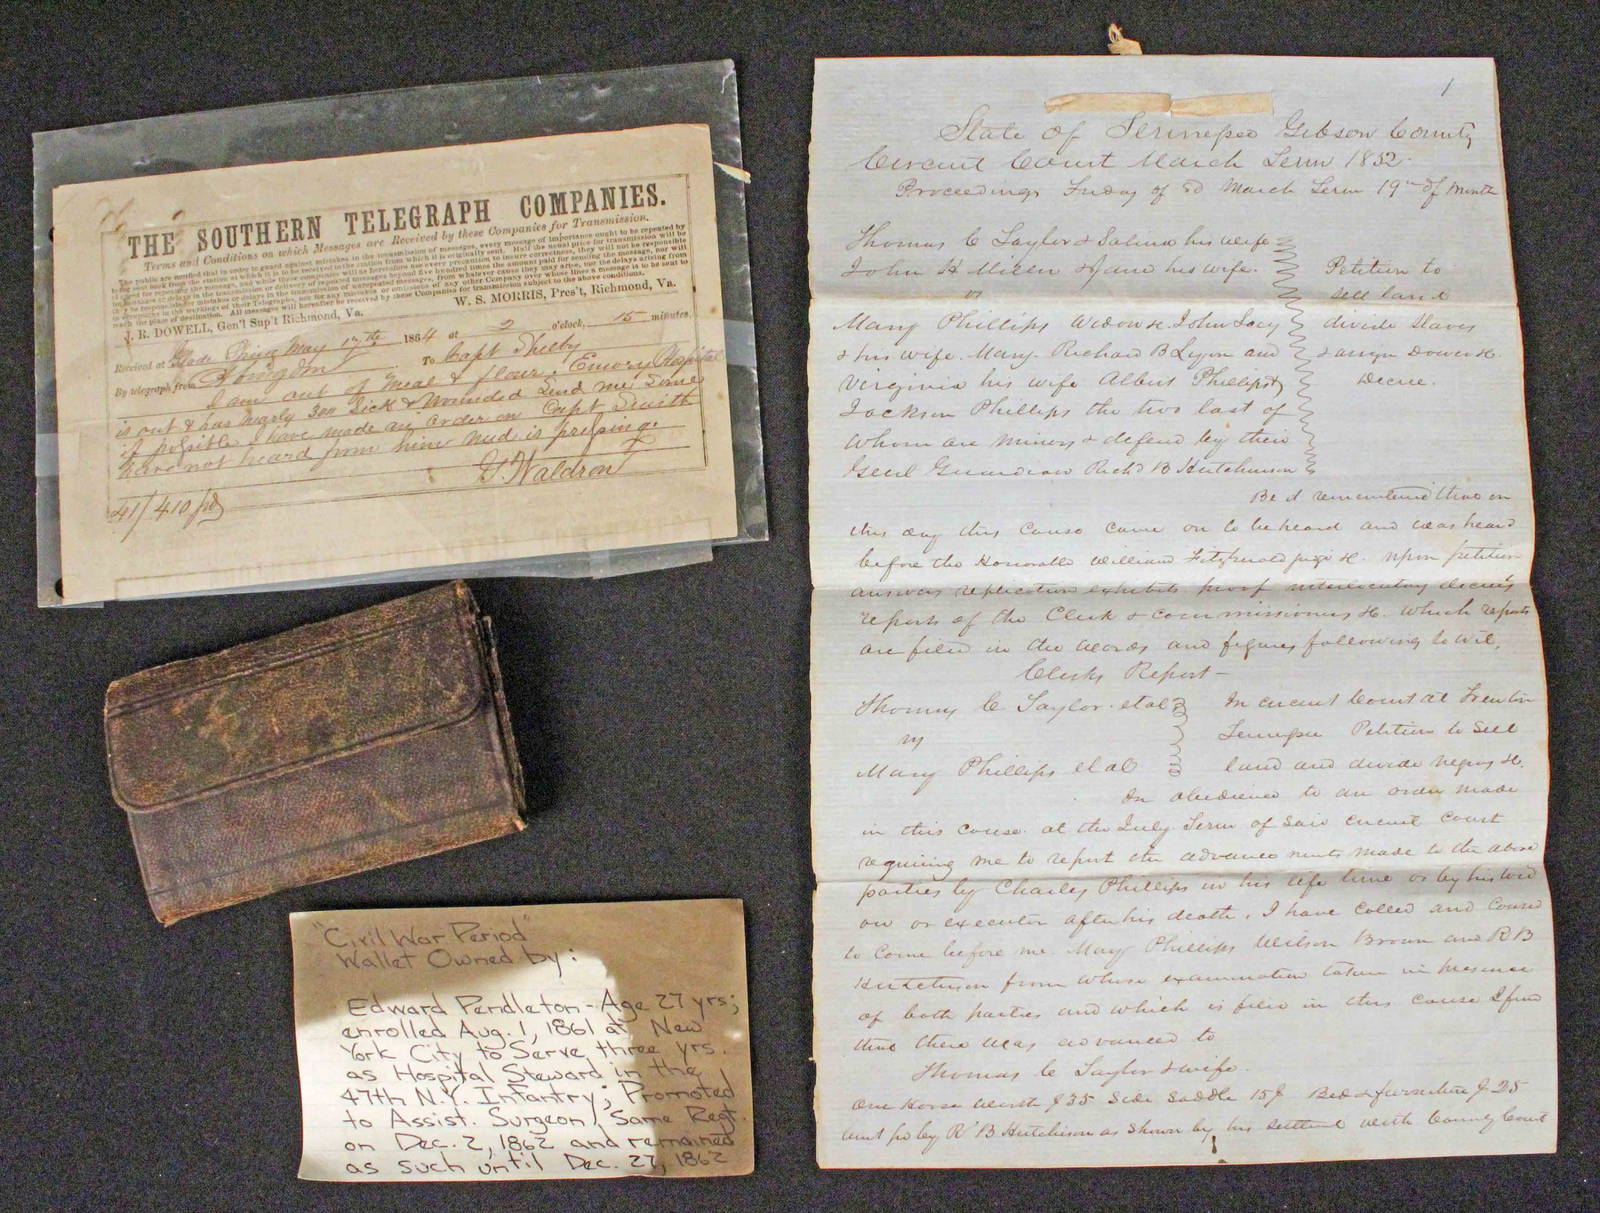 THE SOUTHERN TELEGRAPH COMPANIES.
Terms and Conditions on which Messages are Received by these Companies for Transmission.
The public are notified that in order to guard against mistakes in the transmission of messages, every message of importance ought to be repeated by
being sent back from the station at which it is to be received to the station from which it is originally sent. Half the usual price for transmission will be
reach the place of destination. All messages will hereafter be received by these Companies for transmission subject to the above conditions.
J. R. DOWELL, Gen'l Sup't Richmond, Va.
W. S. MORRIS, Pres't, Richmond, Va.
Received at Glade Spring May 17th 1864 at 2 o'clock, 15 minutes.
By telegraph from Abingdon To Capt Shelby
I am out of meal & flour. Emory Hospital
is out & has nearly 300 Sick & Wounded Send me Some
if possible I have made an order on Capt Smith
have not heard from him need is pressing.
G. Waldron
41/410 pd
"Civil War Period"
Wallet Owned by:
Edward Pendleton - Age 27 yrs;
enrolled Aug. 1, 1861 at New
York City to Serve three yrs.
as Hospital Steward in the
47th N.Y. Infantry; Promoted
to Assist. Surgeon, Same Regt.
on Dec. 2, 1862 and remained
as such until Dec. 27, 1862
1
State of Tennessee Gibson County
Circuit Court March Term 1852.
Proceedings Friday of 3d March Term 19th of Month
Thomas C Taylor & Salina his wife
John H Mizen & Jane his wife.
vs
Mary Phillips Widow &c. John Lacy
& his wife. Mary. Richard B Legon and
Virginia his wife Albert Phillips &
Jackson Phillips the two last of
whom are minors & defend by their
Genl Guardian Richd B Hutchinson
Petition to
sell land
divide slaves
& assign Dower &c.
Decree.
Be it remembered that on
this day this cause came on to be heard and was heard
before the Honorable William Fitzgerald judge &c. upon petition
answers replication exhibits proof interlocutory decrees
reports of the Clerk & commissioners &c. which reports
are filed in the words and figures following to wit,
Clerks Report -
Thomas C Taylor. et al
vs
Mary Phillips et al
In circuit Court at Trenton
Tennessee Petition to sell
land and divide negros &c.
In obedience to an order made
in this cause. at the July Term of said circuit court
requiring me to report the advancements made to the above
parties by Charles Phillips in his life time or by his wid
ow or executor after his death, I have called and caused
to come before me. Mary Phillips Wilson Brown and R B
Hutchinson from whose examination taken in presence
of both parties and which is filed in this cause I find
that there was advanced to
Thomas C Taylor & wife.
One Horse worth $35 Side Saddle 15$ Bed & furniture $25
amt pd by R B Hutchison as shown by his settlement with County Court